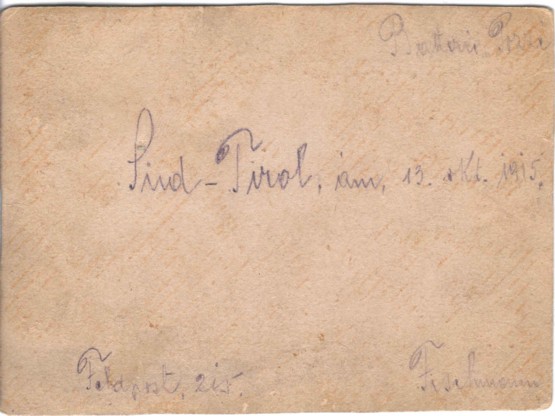 Batterie
Süd-Tirol, am, 13. Okt. 1915.
Feldpost, 215.
Fischmann